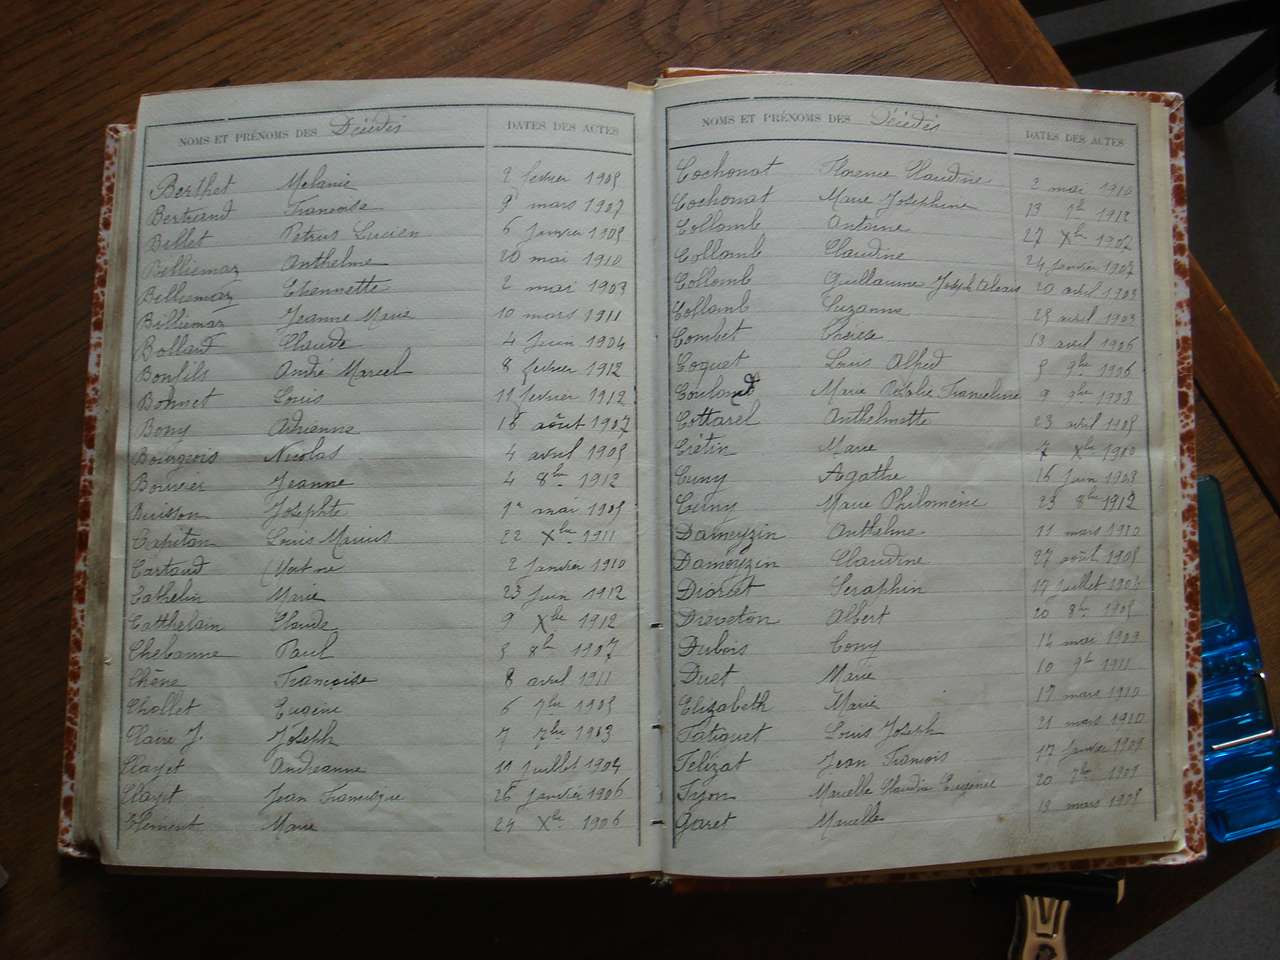 NOMS ET PRÉNOMS DES Décédés DATES DES ACTES
Berthet Mélanie 2 février 1905
Bertrand Françoise 9 mars 1907
Billet Pétrus Lucien 6 janvier 1905
Billiemaz Anthelme 20 mai 1910
Billiemaz Etiennette 2 mai 1903
Billiemaz Jeanne Marie 10 mars 1911
Bollard Claude 4 juin 1904
Bonfils André Marcel 8 février 1912
Bonnet Louis 11 février 1912
Bony Adrienne 16 août 1907
Bourgeois Nicolas 4 avril 1905
Bouvier Jeanne 4 8bre 1912
Buisson Josephte 1er mai 1905
Capitan Louis Marius 22 Xbre 1911
Cartaud 2 janvier 1910
Cathelin Marie 23 juin 1912
Catthelain Claude 9 Xbre 1912
Chebanne Paul 5 8bre 1907
Chêne Françoise 8 avril 1911
Chollet Eugène 6 7bre 1905
Claire J. Joseph 7 7bre 1903
Clayet Andréanne 11 juillet 1904
Clayet Jean Françisque 26 janvier 1906
Clément Marie 24 Xbre 1906
NOMS ET PRÉNOMS DES Décédés DATES DES ACTES
Cochonat Florence Claudine 2 mai 1910
Cochonat Marie Joséphine 13 1912
Collomb Antoine 27 Xbre 1902
Collomb Claudine 24 janvier 1907
Collomb Guillaume Joseph 20 avril 1903
Collomb Suzanne 25 avril 1903
Combet 13 avril 1906
Coquet Louis Alfred 5 9bre 1906
Marie Rosalie Franceline 9 9bre 1908
Cottarel Anthelmette 23 avril 1905
Crétin Marie 7 Xbre 1910
Cuny Agathe 16 juin 1908
Cuny Marie Philomène 23 8bre 1912
Dameyzin Anthelme 11 mars 1910
Damoyzin Claudine 27 août 1905
Séraphin 17 juillet 1904
Dreveton Albert 20 8bre 1905
Dubois Cony 16 mai 1909
Duet Marie 10 9bre 1911
Elizabeth Marie 17 mars 1910
Fatiguet Louis Joseph 21 mars 1910
Félizat Jean François 17 janvier 1909
Fijon Marcelle Claudia Eugénie 20 7bre 1909
Garet Marcelle 13 mars 1905